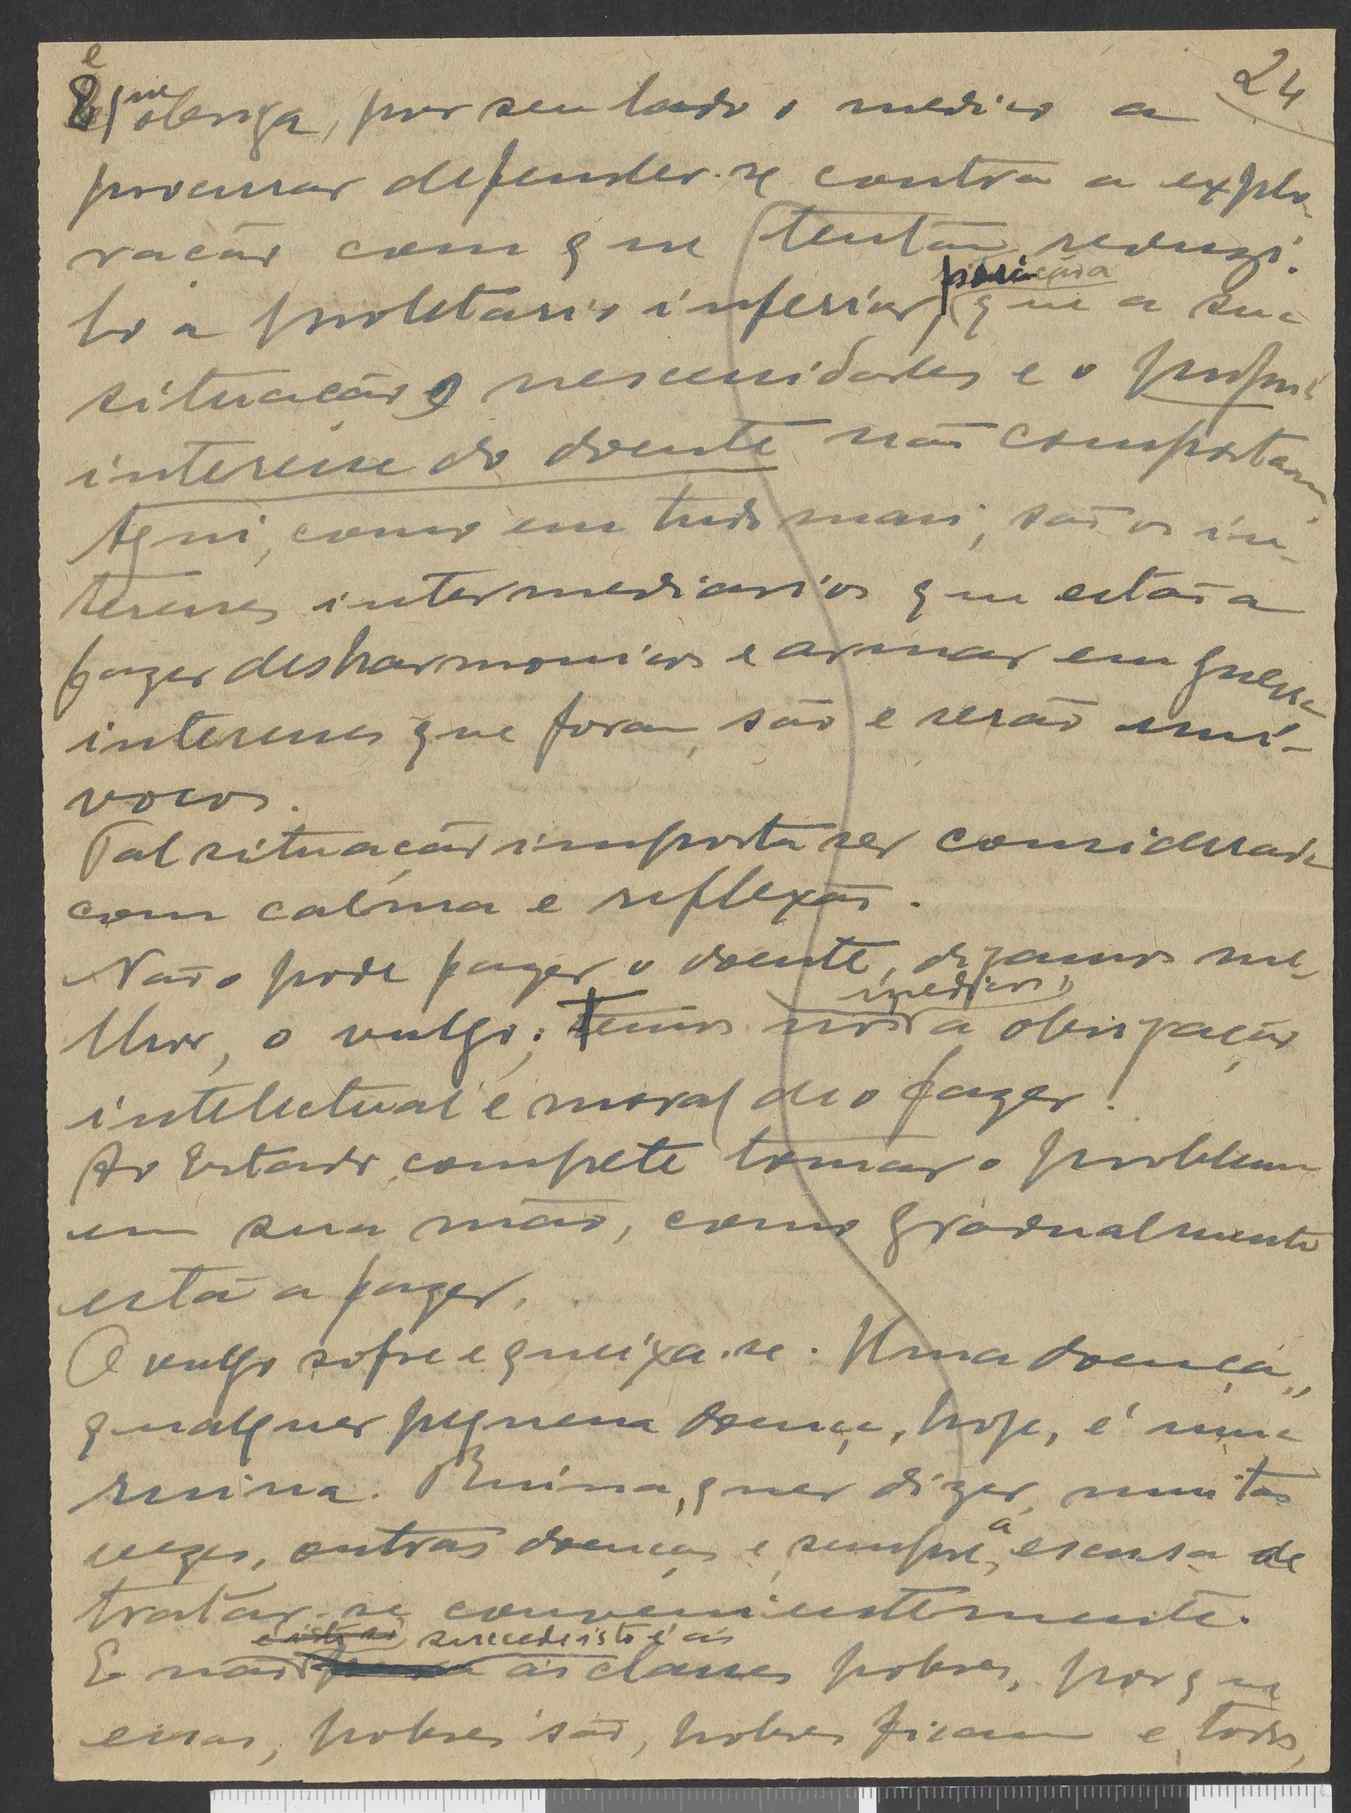 24
e que obriga, por seu lado o medico a
procurar defender-se contra a explo-
ração com que tentão reduzi-
lo a proletario inferior, que a sua
situação, necessidades e o proprio
interesse do doente não comportam
Aqui, como em tudo mais, são os in-
teresses intermediarios que estão a
fazer desharmonicos e armar em guerra
interesses que foram, são e serão uni-
vocos.
Tal situação importa ser considerada
com calma e reflexão.
Não o pode fazer o doente, digamos me-
lhor, o vulgo; Temos nós medicos, a obrigação
intelectual e moral de o fazer!
Ao Estado, compete tomar o problema
em sua mão, como gradualmente
está a fazer.
O vulgo sofre e queixa-se. Uma doença,
qualquer pequena doença, hoje, é uma
ruina. Ruina, quer dizer, muitas
vezes, outras doenças e, sempre, a escusa de
tratar-se convenientemente.
E não sucede isto ás classes pobres, porque
essas, pobres são, pobres ficam e, todos,